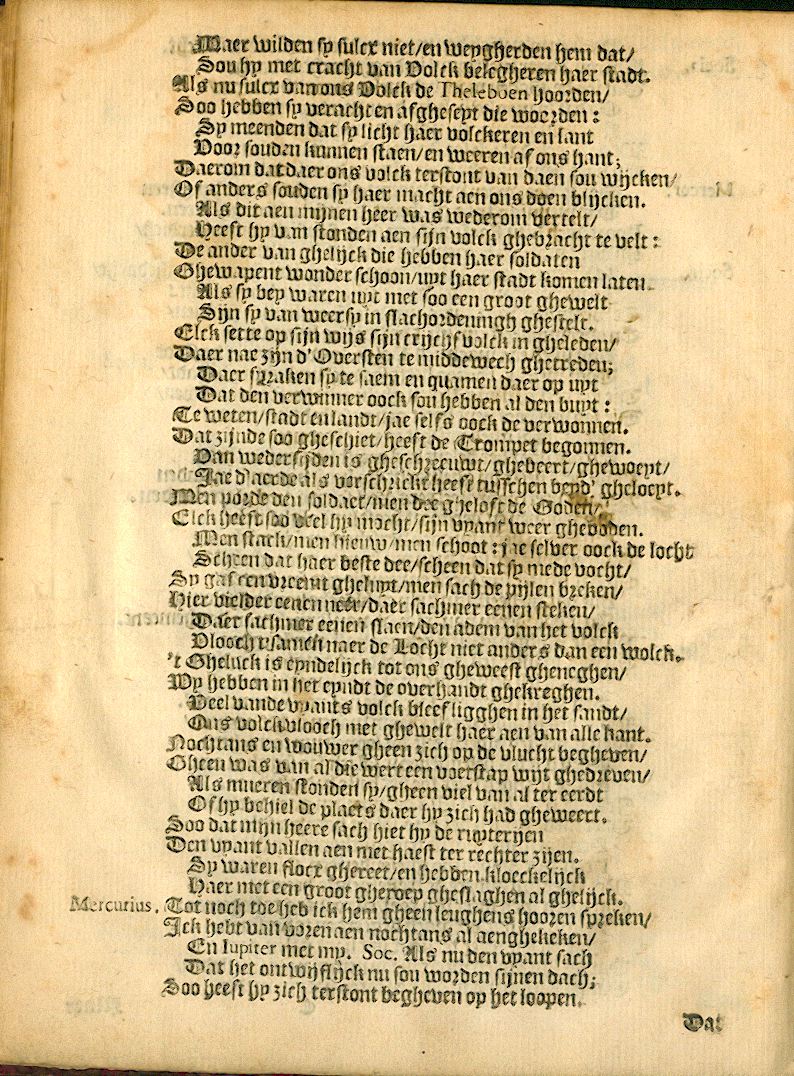 Maer wilden sy sulcx niet/en weygherden hem dat/
Sou hy met cracht van Volck belegheren haer stadt.
Als nu sulcx van ons Volck de Theleboen hoorden/
Soo hebben sy veracht en afgheseyt die woorden:
Sy meenden dat sy licht haer volckeren en lant
Voor souden kunnen staen/en weeren af ons hant;
Daerom dat daer ons volck terstont van daen sou wijcken/
Of anders souden sy haer macht aen ons doen blijcken.
Als dit aen mijnen heer was wederom vertelt/
Heeft hy van stonden aen sijn volck ghebracht te velt:
De ander van ghelijck die hebben haer soldaten
Ghewapent wonder schoon/uyt haer stadt komen laten.
Als sy bey waren uyt met soo een groot ghewelt
Sijn sy van weersy in slachordeningh ghestelt.
Elck sette op sijn wijs sijn crijchsvolck in gheleden/
Daer nae zijn d'Oversten te middewech ghetreden;
Daer spraken sy te saem en quamen daer op uyt
Dat den verwinner oock sou hebben al den buyt:
Te weten/stadt en landt/jae selfs oock de verwonnen.
Dat zijnde soo gheschiet/heeft de Trompet begonnen.
Van wedersijden is gheschreeuwt/ghebeert/ghewoept/
Jae d'aerde als verschrickt heeft tusschen beyd' gheloept.
Men porde den soldaet/men dee gheloft de Goden/
Elck heeft soo veel hy mocht/sijn vyant weer gheboden.
Men stack/men hieuw/men schoot: jae selver oock de locht
Scheen dat haer beste dee/scheen dat sy mede vocht/
Sy gaf een vreemt gheluyt/men sach de pijlen breken/
Hier vielder eenen neêr/daer sachmer eenen steken/
Daer sachmer eenen slaen/den adem van het volck
Vlooch t'samen naer de Locht niet anders dan een wolck.
't Gheluck is eyndelijck tot ons gheweest gheneghen/
Wy hebben in het eyndt de overhandt ghekreghen.
Veel vande vyants volck bleef ligghen in het sandt/
Ons volck vlooch met ghewelt haer aen van alle kant.
Nochtans en wouwer gheen zich op de vlucht begheven/
Gheen was van al die wert een voerstap wijt ghedreven/
Als mueren stonden sy/gheen viel van al ter eerdt
Of hy behiel de plaets daer hy zich had gheweert.
Soo dat mijn heere sach hiet hy de ruyterijen
Den vyant vallen aen met haest ter rechter zijen.
Sy waren flocx ghereet/en hebben kloeckelijck
Haer met een groot gheroep gheslaghen al ghelijck.
Mercurius. Tot noch toe heb ick hem gheen leughens hooren spreken/
Ick hebt van voren aen nochtans al aenghekeken/
En Iupiter met my. Soc. Als nu den vyant sach
Dat het ontwijflijck nu sou worden sijnen dach;
Soo heeft hy zich terstont begheven op het loopen.
Dat